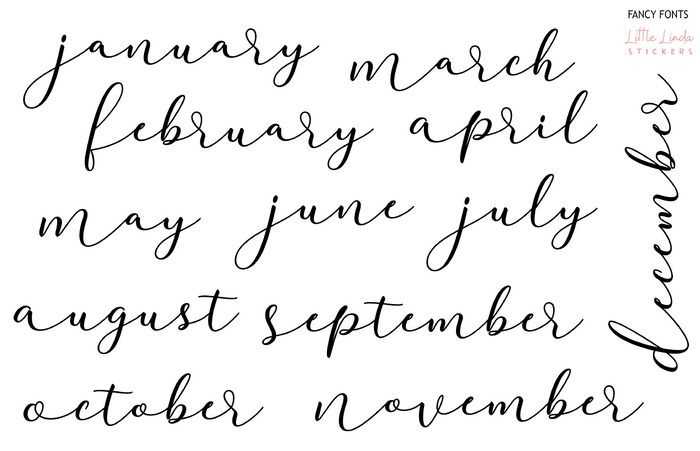 FANCY FONTS
Little Linda
STICKERS
january march
february april
may june july
august september
october november
december